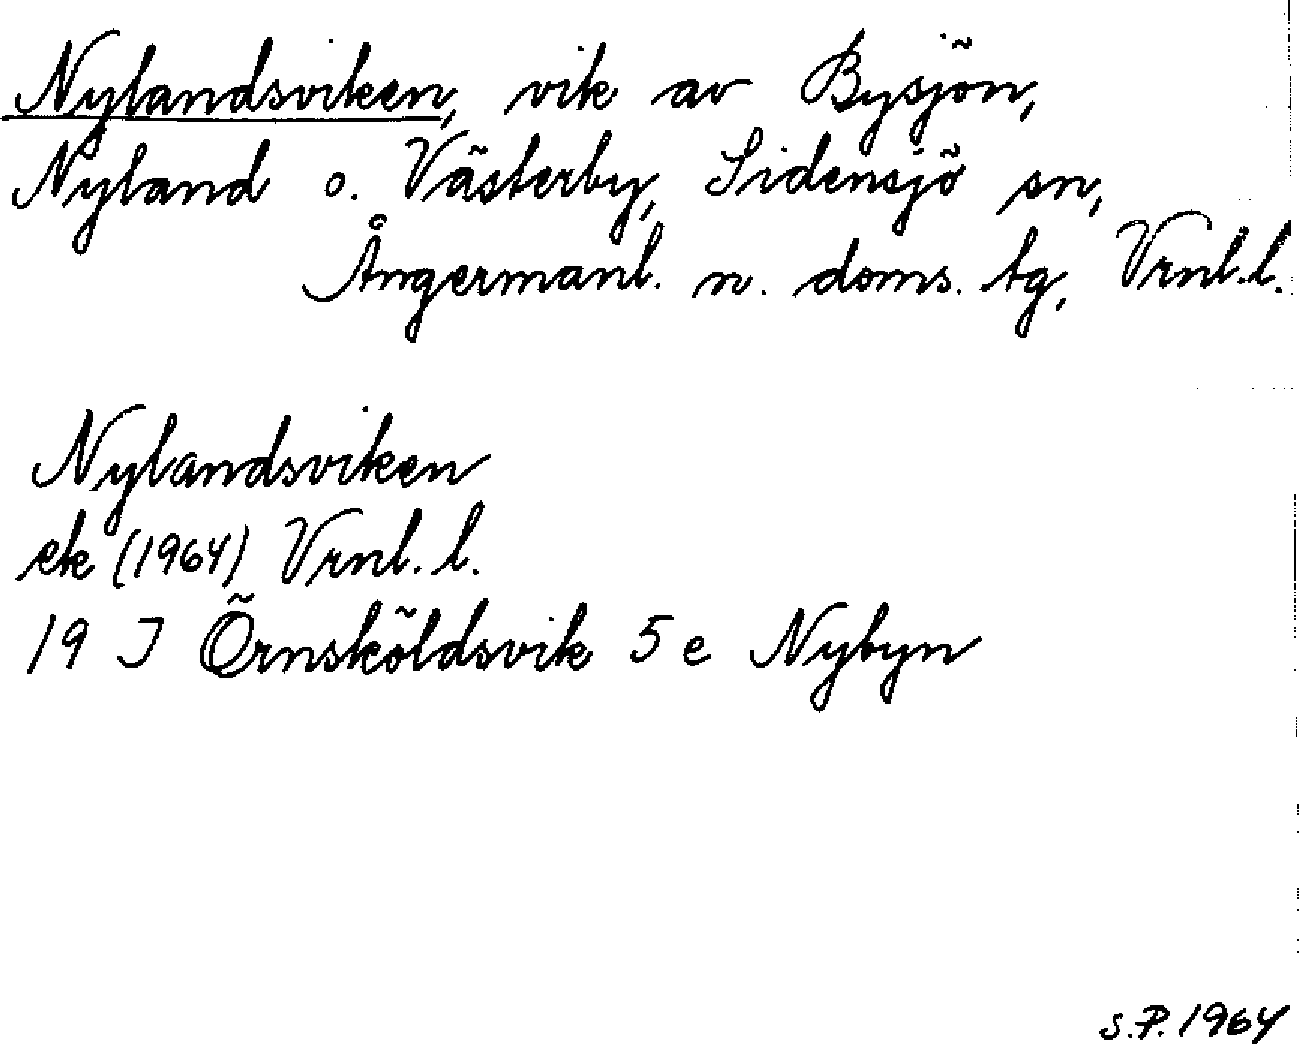 Nylandsviken, vik av Bysjön,
Nyland o. Västerby, Sidensjö sn,
Ångermanl. n. doms. tg, Vrnl.l.
Nylandsviken
ek (1964) Vrnl. l.
19 J Örnsköldsvik 5 e Nybyn
S.P. 1964